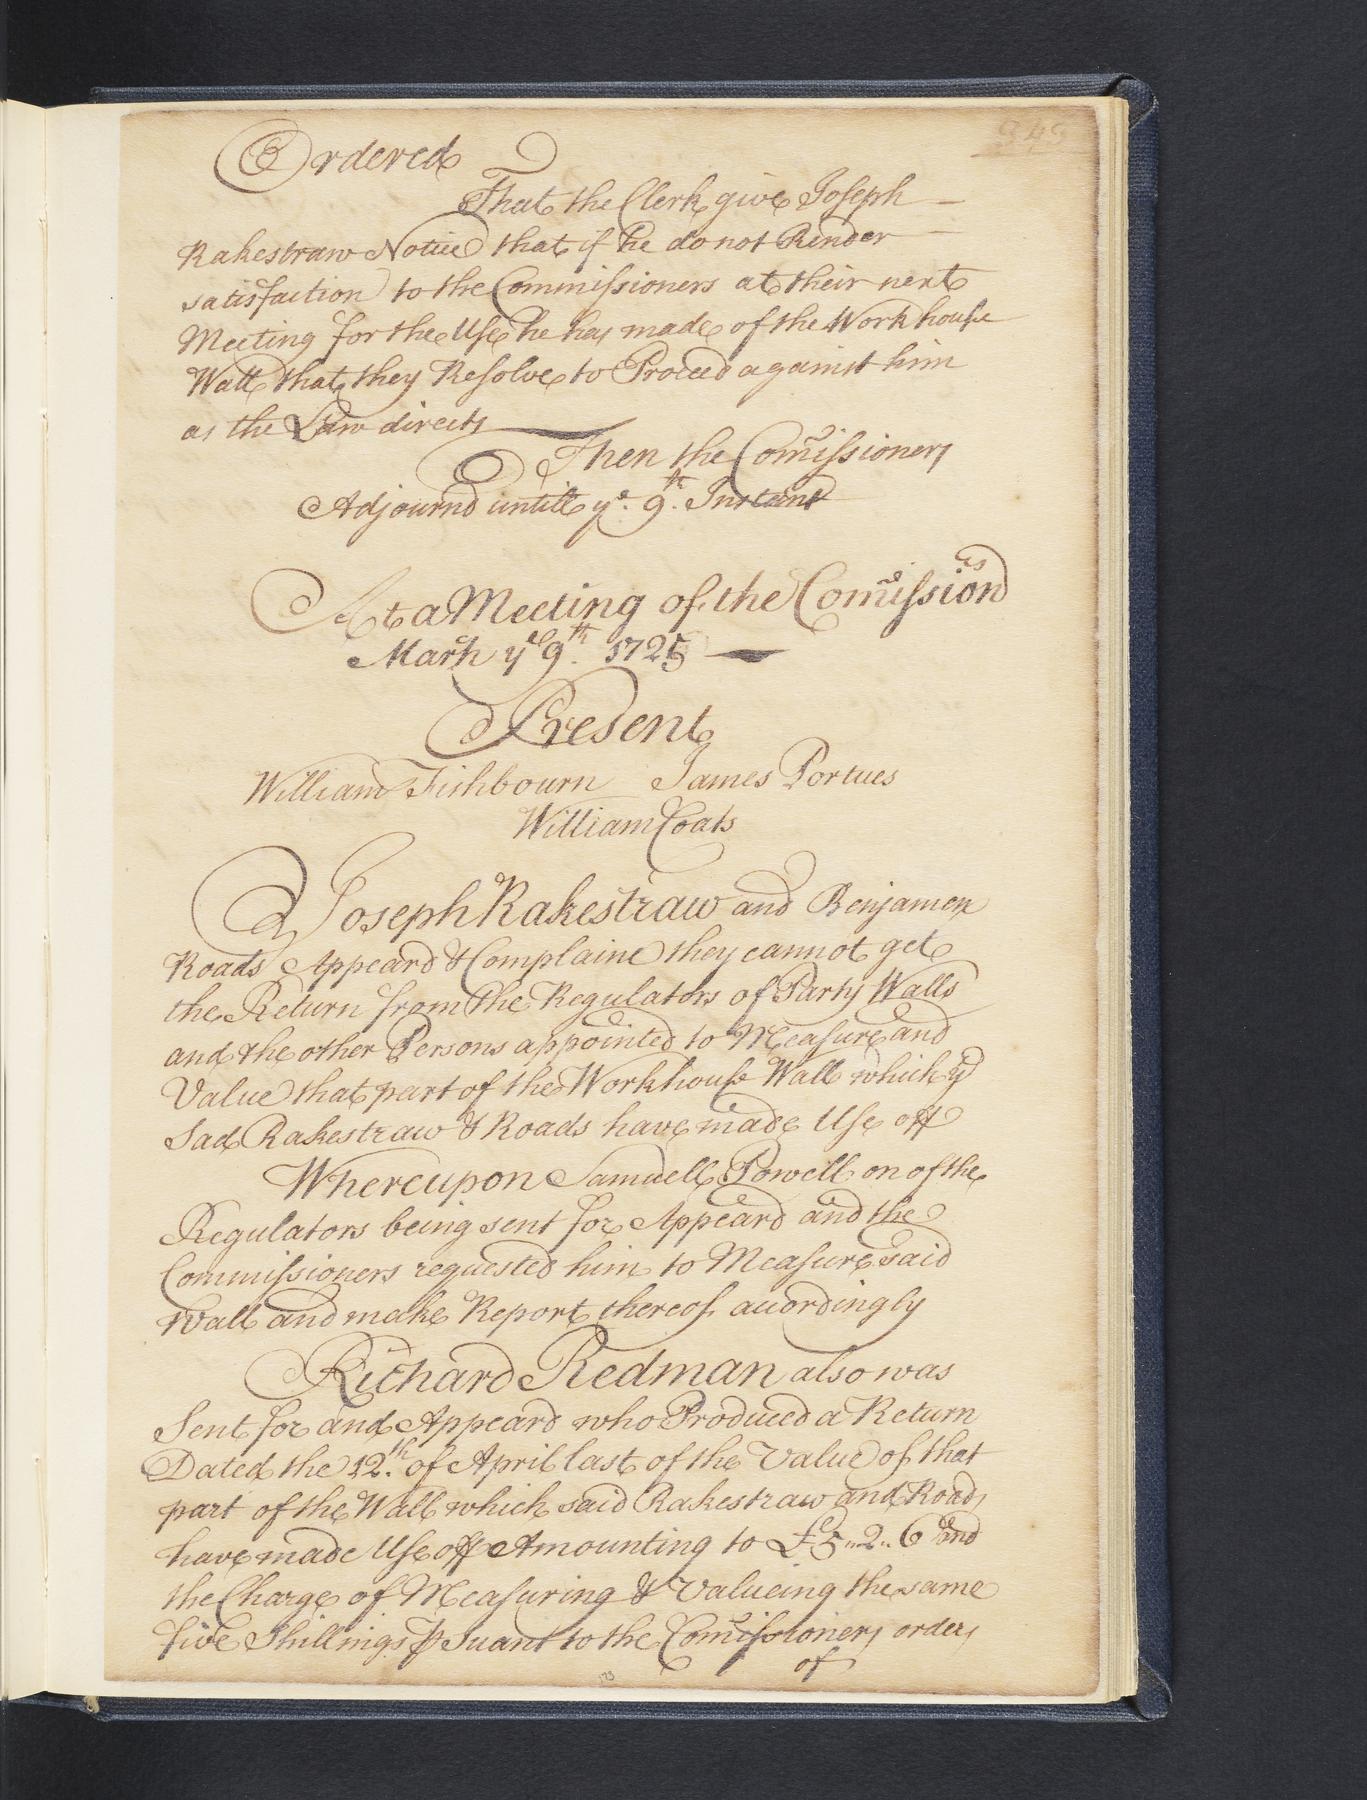 343
Ordered
That the Clerk give Joseph
Rakestraw Notice that if he do not Render
satisfaction to the Commissioners at their next
Meeting for the Use he has made of the Workhouse
Wall that they Resolve to Proceed against him
as the Law directs
Then the Comissioners
Adjournd untill ye. 9th. Instant
At a Meeting of the Comissionrs
March ye 9th. 1725
Present
William Fishbourn James Portues
William Coats
Joseph Rakestraw and Benjamen
Roads Appeard & Complaine they cannot get
the Return from the Regulators of Party Walls
and the other Persons appointed to Measure and
Value that part of the Workhouse Wall which ye
Sad Rakestraw & Roads have made Use off
Whereupon Samuell Powell on of the
Regulators being sent for Appeard and the
Commissioners requested him to Measure said
Wall and make Report thereof acordingly
Richard Redman also was
Sent for and Appeard who Produced a Return
Dated the 12.th of April last of the Value of that
part of the Wall which said Rakestraw and Roads
have made Use off Amounting to £5..2..6 and
the Charge of Measuring & Valueing the same
five Shillings Psuant to the Comissioners orders
of